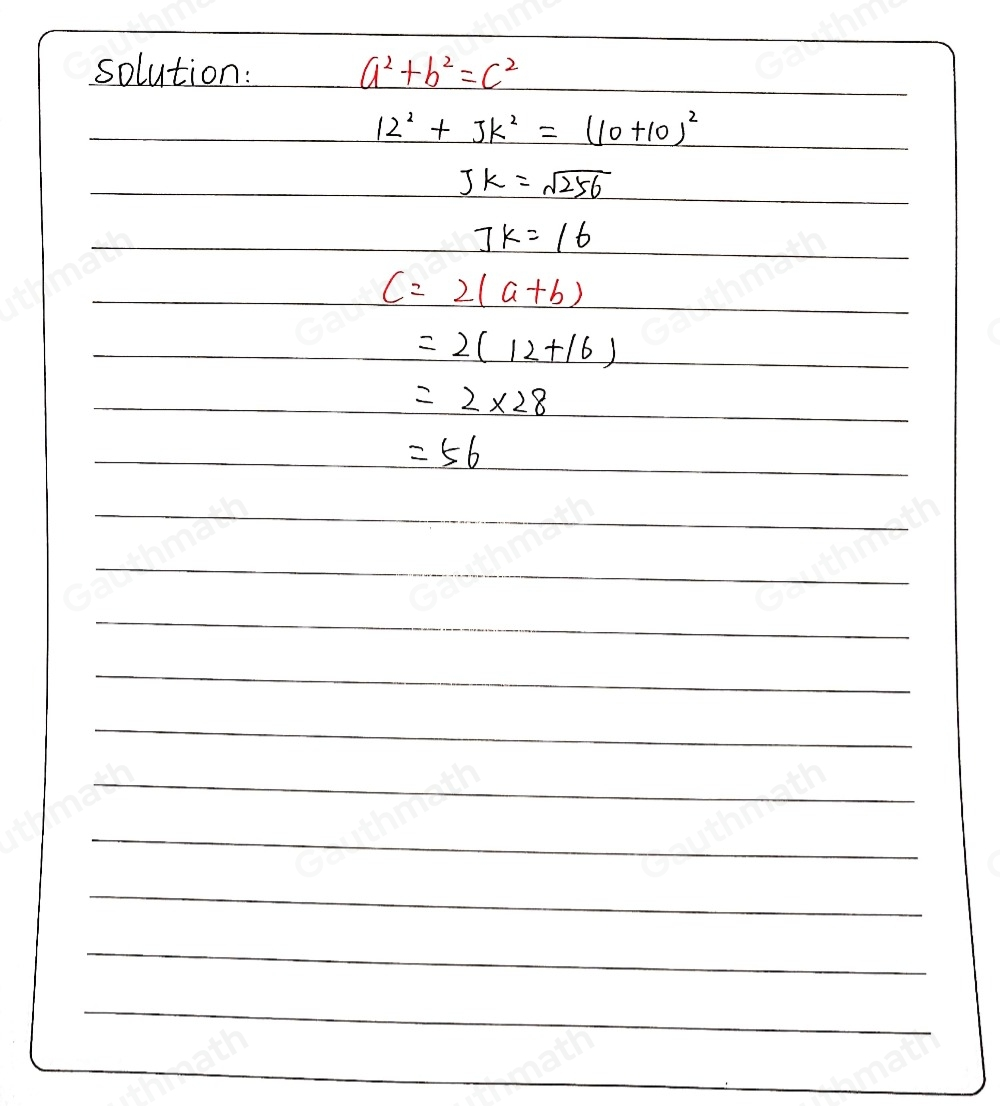 Solution: a² + b² = c²
12² + JK² = (10+10)²
JK = √256
JK = 16
C = 2(a+b)
= 2(12+16)
= 2×28
= 56
Gauthmath